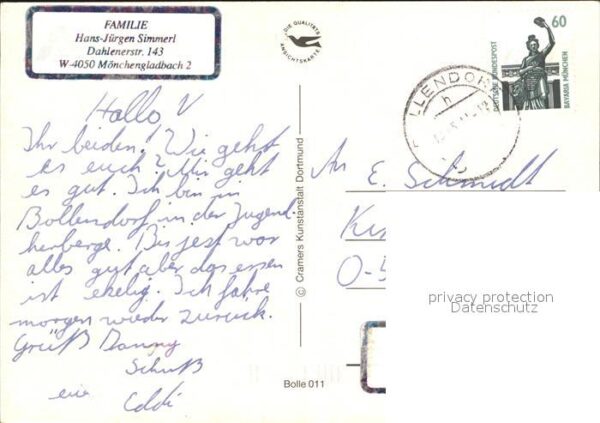 FAMILIE
Hans-Jürgen Simmerl
Dahlenerstr. 143
W-4050 Mönchengladbach 2
DIE QUALITÄTS
ANSICHTSKARTE
60
DEUTSCHE BUNDESPOST
BAVARIA MÜNCHEN
LLENDOR
h
Hallo
Ihr beiden! Wie geht
es euch? Mir geht
es gut. Ich bin in
Bollendorf in der Jugend
herberge. Bis jest war
alles gut aber das essen
ist ekelig. Ich fahre
morgen wieder zurück.
Grüß Danny
An E. Schmidt
© Cramers Kunstanstalt Dortmund
Bolle 011
privacy protection
Datenschutz